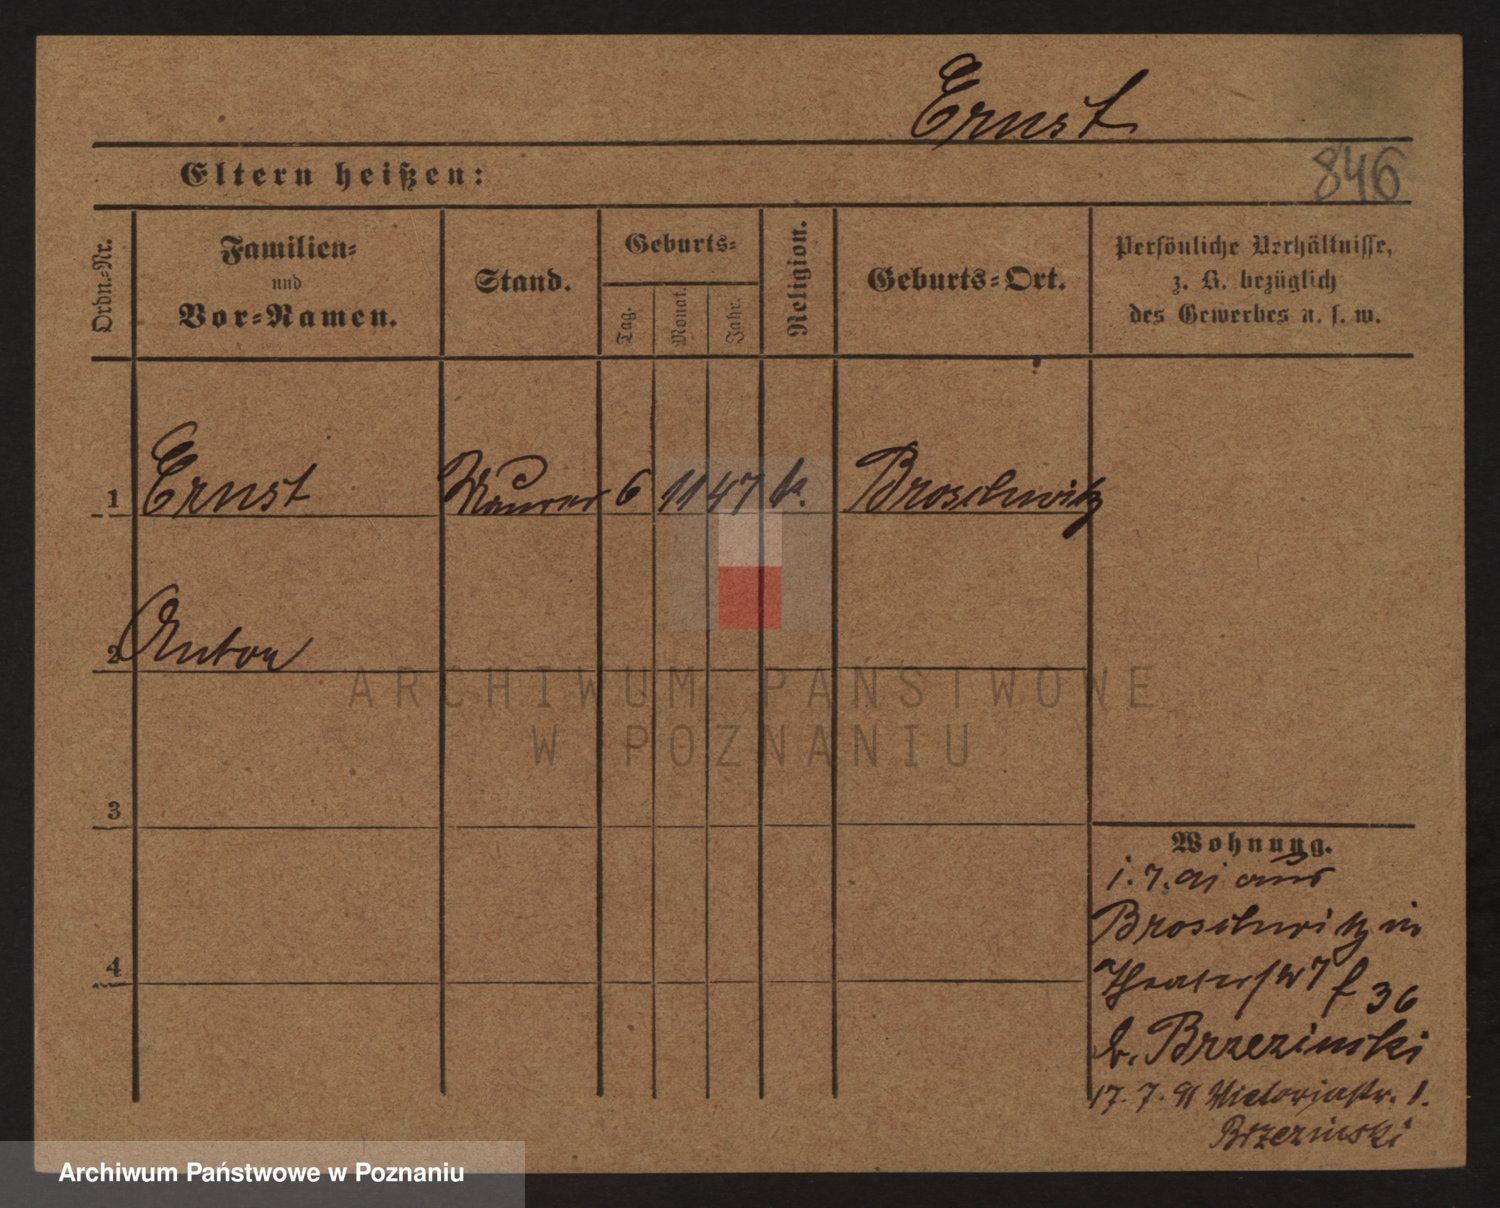 Ernst
846
Eltern heißen:
Ordn.-Nr.
Familien-
und
Vor-Namen.
Stand.
Geburts-
Tag.
Monat.
Jahr.
Religion.
Geburts-Ort.
Persönliche Verhältnisse,
z. B. bezüglich
des Gewerbes u. s. w.
1 Ernst Maurer 6 11 47 k. Broschwitz
2 Anton
3
4
Wohnung.
1. 7. 91 aus
Broschwitz in
36
b. Brzezinski
17. 7. 91 Victoriastr. 1.
Brzezinski
ARCHIWUM PAŃSTWOWE
W POZNANIU
Archiwum Państwowe w Poznaniu